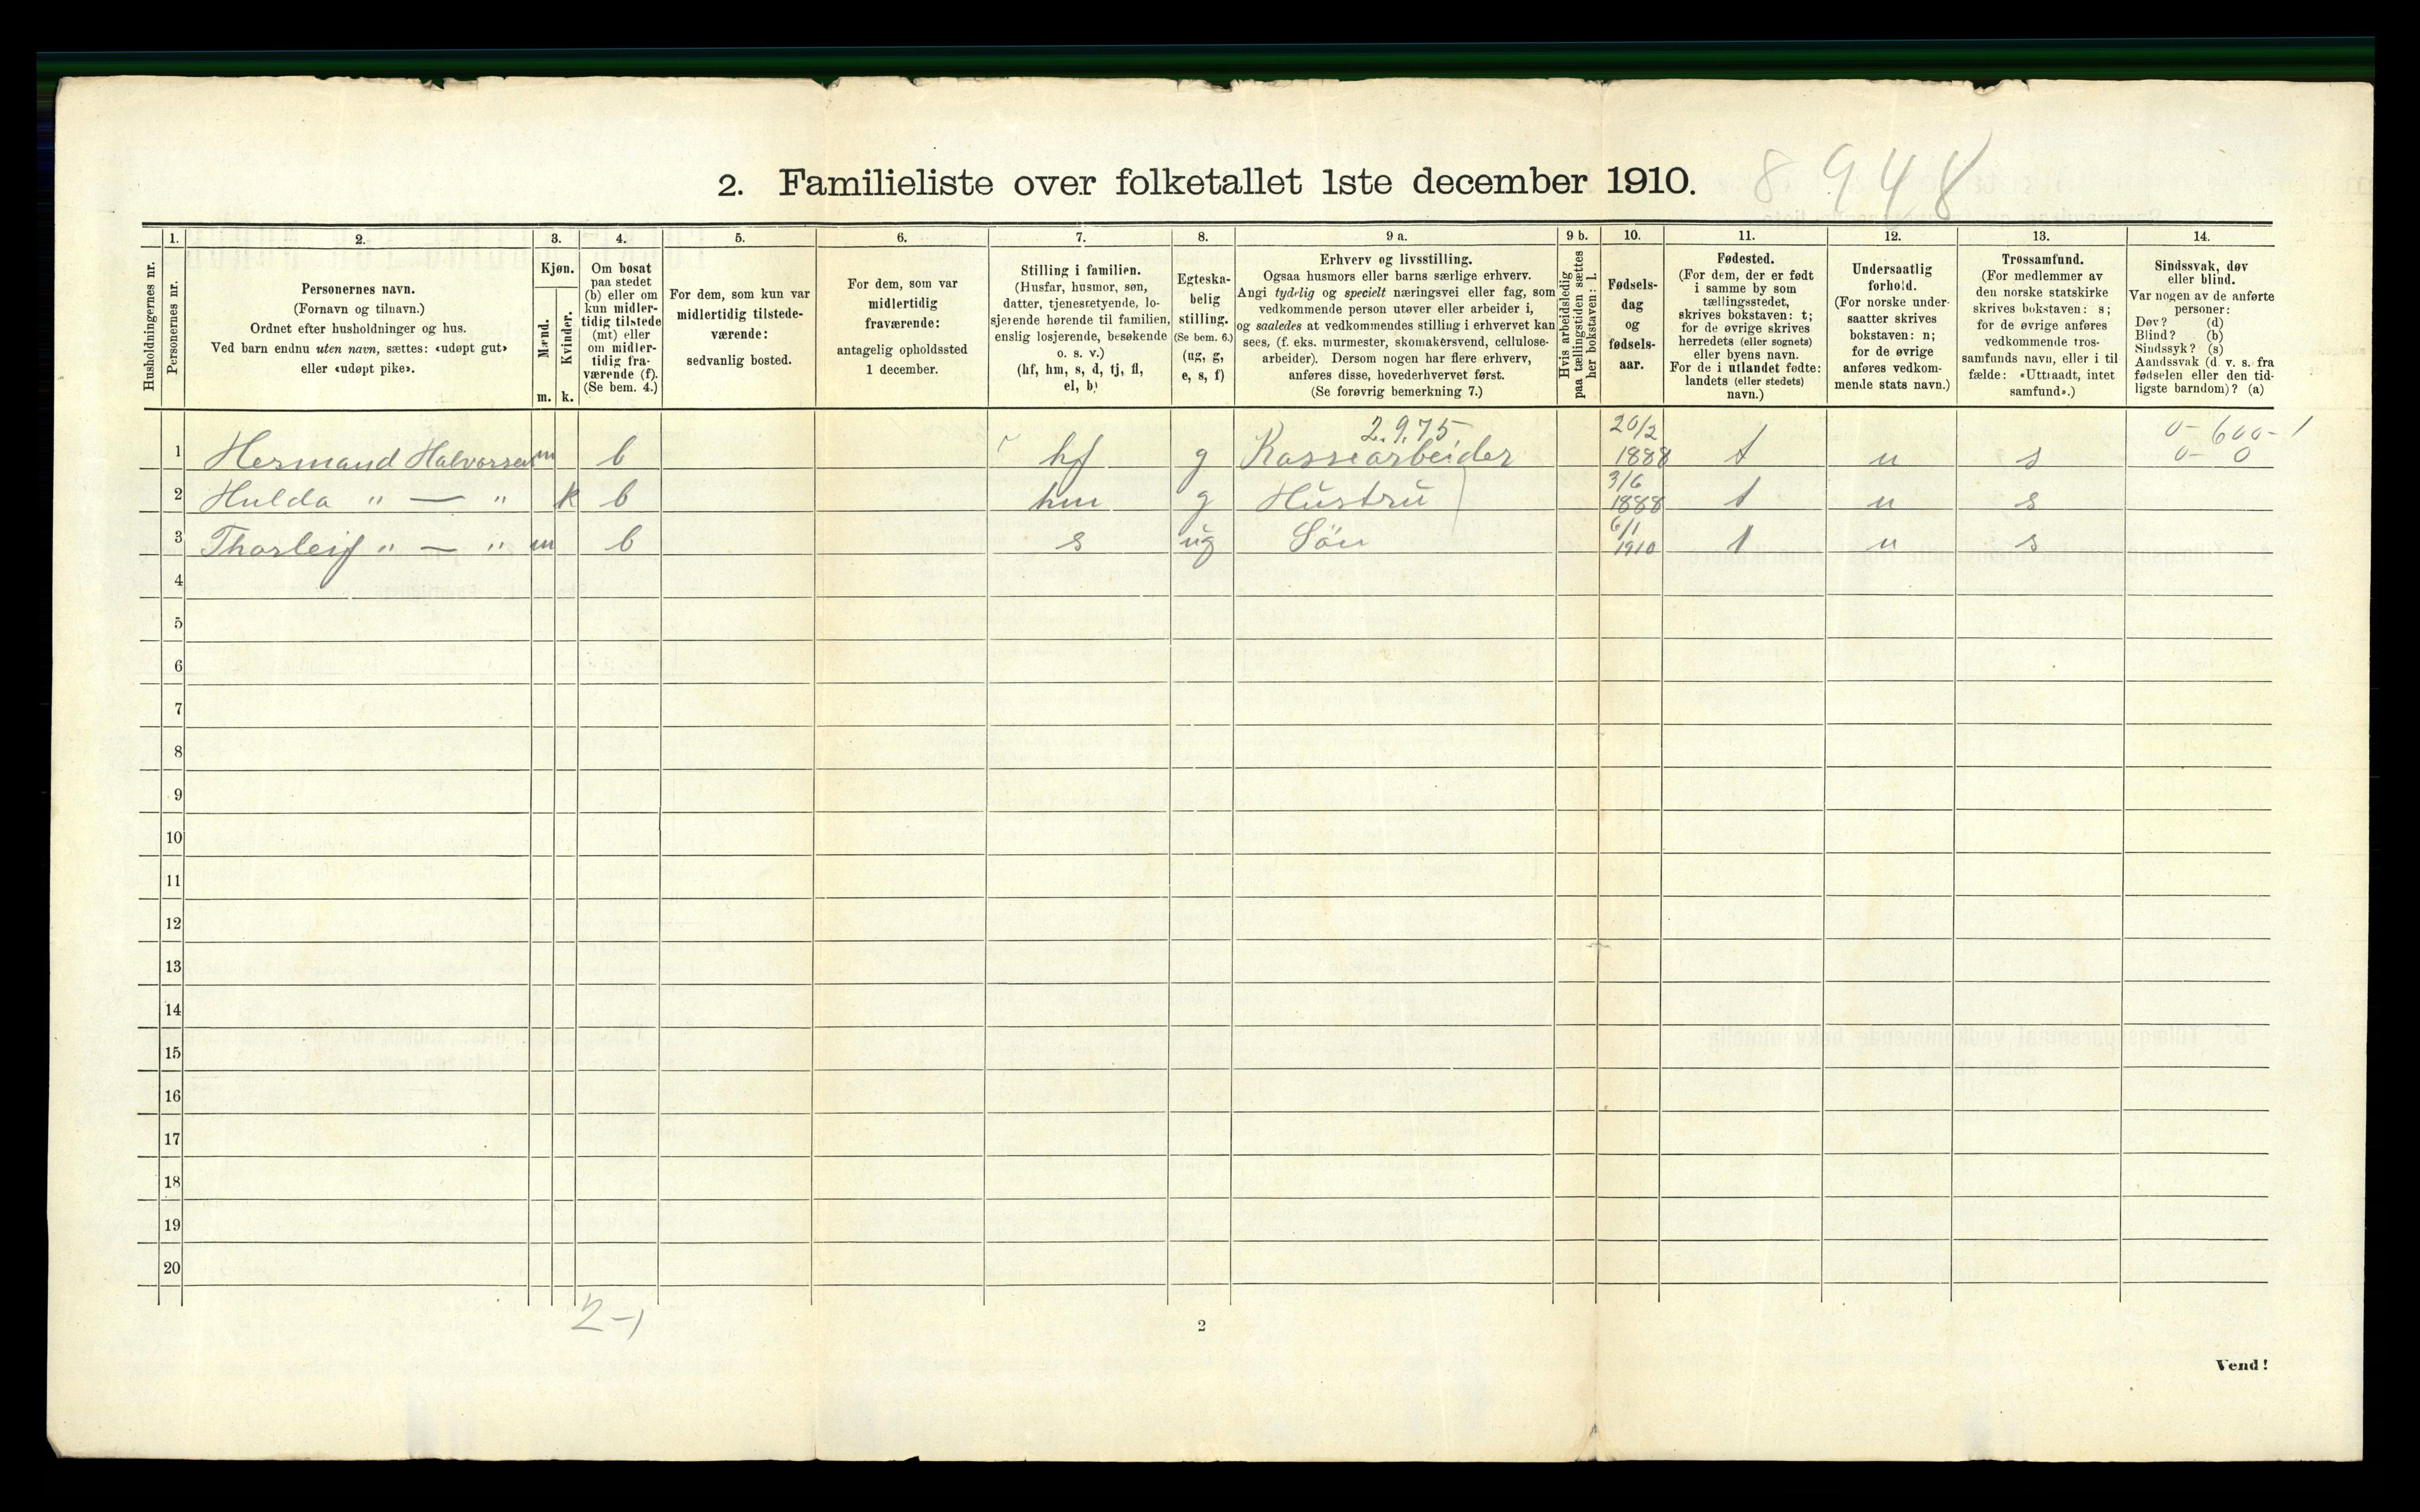 2. Familieliste over folketallet 1ste december 1910.
8 948
Husholdningernes nr.
1.
Personernes nr.
2.
Personernes navn.
(Fornavn og tilnavn.)
Ordnet efter husholdninger og hus.
Ved barn endnu uten navn, sættes: «udøpt gut»
eller «udøpt pike».
3.
Kjøn.
Mænd.
Kvinder.
m. k.
4.
Om bosat
paa stedet
(b) eller om
kun midler-
tidig tilstede
(mt) eller
om midler-
tidig fra-
værende (f).
(Se bem. 4.)
5.
For dem, som kun var
midlertidig tilstede-
værende:
sedvanlig bosted.
6.
For dem, som var
midlertidig
fraværende:
antagelig opholdssted
1 december.
7.
Stilling i familien.
(Husfar, husmor, søn,
datter, tjenestetyende, lo-
sjerende hørende til familien,
enslig losjerende, besøkende
o. s. v.)
(hf, hm, s, d, tj, fl,
el, b)
8.
Egteska-
belig
stilling.
(Se bem. 6.)
(ug, g,
e, s, f)
9 a.
Erhverv og livsstilling.
Ogsaa husmors eller barns særlige erhverv.
Angi tydelig og specielt næringsvei eller fag, som
vedkommende person utøver eller arbeider i,
og saaledes at vedkommendes stilling i erhvervet kan
sees, (f. eks. murmester, skomakersvend, cellulose-
arbeider). Dersom nogen har flere erhverv,
anføres disse, hovederhvervet først.
(Se forøvrig bemerkning 7.)
9 b.
Hvis arbeidsledig
paa tællingstiden sættes
her bokstaven: l.
10.
Fødsels-
dag
og
fødsels-
aar.
11.
Fødested.
(For dem, der er født
i samme by som
tællingsstedet,
skrives bokstaven: t;
for de øvrige skrives
herredets (eller sognets)
eller byens navn.
For de i utlandet fødte:
landets (eller stedets)
navn.)
12.
Undersaatlig
forhold.
(For norske under-
saatter skrives
bokstaven: n;
for de øvrige
anføres vedkom-
mende stats navn.)
13.
Trossamfund.
(For medlemmer av
den norske statskirke
skrives bokstaven: s;
for de øvrige anføres
vedkommende tros-
samfunds navn, eller i til-
fælde: «Uttraadt, intet
samfund».)
14.
Sindssvak, døv
eller blind.
Var nogen av de anførte
personer:
Døv? (d)
Blind? (b)
Sindssyk? (s)
Aandssvak (d. v. s. fra
fødselen eller den tid-
ligste barndom)? (a)
2.9.75. 20/2 0- 600- 1
1 Hermand Halvorsen m b hf g Kassearbeider 1888 t n s 0- 0
3/6
2 Hulda " — " k b hm g Hustru 1888 t n s
6/1
3 Thorleif " — " m b s ug Sön 1910 t n s
4
5
6
7
8
9
10
11
12
13
14
15
16
17
18
19
20
2-1
2
Vend!